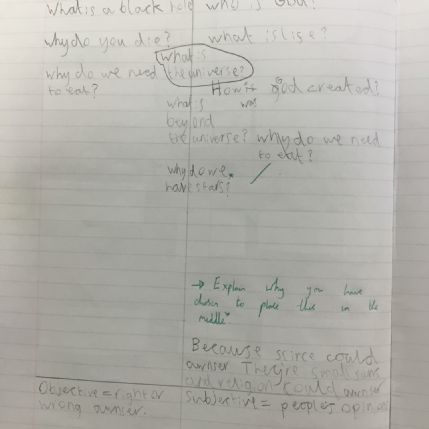 What is a black hole why is God?
why do you die? what is lise?
what is
why do we need the universe?
to eat?
How was god created?
what is
beyond
the universe? why do we need
to eat?
why do we
have stars?
→ Explain why you have
chosen to place this in the
middle
Because scirce could
awnser They're small suns
and religion could awnser
Objective = right or
wrong awnser.
Subjective = peoples opinions